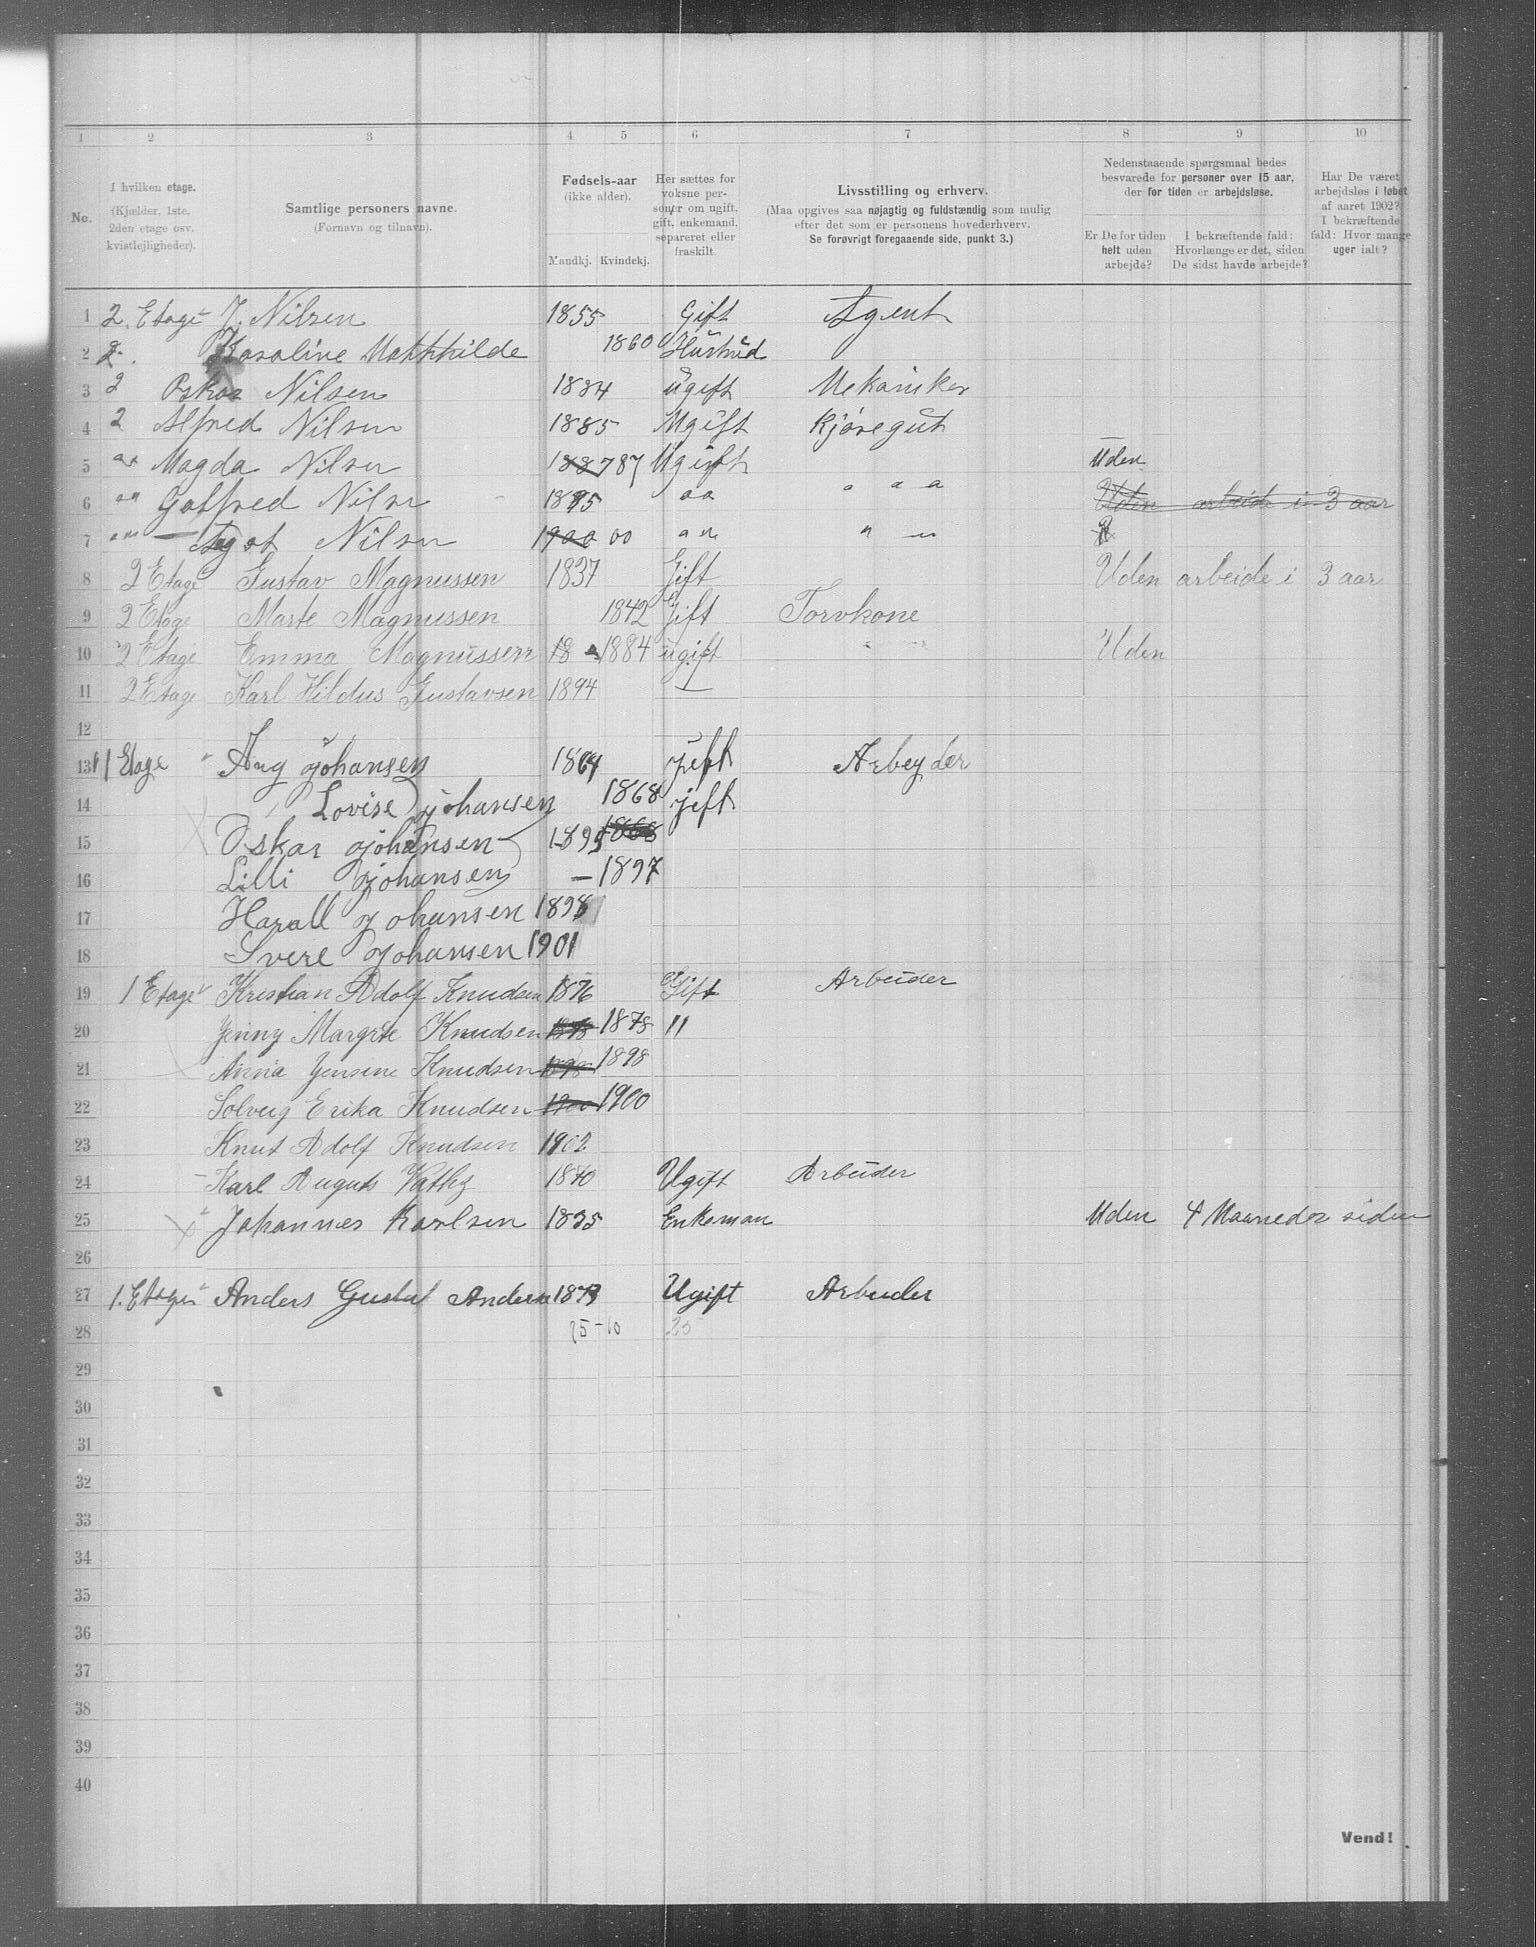 1 2 3 4 5 6 7 8 9 10
No.
I hvilken etage.
(Kjælder, 1ste.
2den etage osv.
kvistlejligheder).
Samtlige personers navne.
(Fornavn og tilnavn).
Fødsels-aar
(ikke alder).
Mandkj. Kvindekj.
Her sættes for
voksne per-
soner om ugift,
gift, enkemand,
separeret eller
fraskilt.
Livsstilling og erhverv.
(Maa opgives saa nøjagtig og fuldstændig som mulig
efter det som er personens hovederhverv.
Se forøvrigt foregaaende side, punkt 3.)
Nedenstaaende spørgsmaal bedes
besvarede for personer over 15 aar,
der for tiden er arbejdsløse.
Er De for tiden
helt uden
arbejde?
I bekræftende fald:
Hvorlænge er det, siden
De sidst havde arbejde?
Har De været
arbejdsløs i løbet
af aaret 1902?
I bekræftende
fald: Hvor mange
uger ialt?
1 2. Etage J. Nilsen 1855 Gift Agent
2 2. Rosoline Mathhilde 1860 Hustrud
3 2 Oskar Nilsen 1884 Ugift Mekaniker
4 2 Alfred Nilsen 1885 Ugift Kjøregut
5 " Magda Nilsen 1887 87 Ugift Uden
6 " Gotfred Nilsn 1895 " " " " Uden arbeide i 3 aar
7 " Agot Nilsen 1900 00 " " " "
8 2 Etage Gustav Magnussen 1837 Gift Uden arbeide i 3 aar
9 2 Etage Marte Magnussen 1842 Gift Torvkone
10 2 Etage Emma Magnussen 18 1884 ugift " " Uden
11 2 Etage Karl Hildus Gustavsen 1894 —
12
13 1 Etage Aug Johansen 1864 jeft Arbeyder
14 Lovise Johansen 1868 jeft
15 Oskar Johansen 1895 1868
16 Lilli Johansen — 1897
17 Harall Johansen 1898
18 Svere Johansen 1901
19 1 Etage Kristian Adolf Knudsen 1876 Gift Arbeider
20 Jenny Margrete Knudsen 1878 1878 "
21 Anna Jensine Knudsen 1898 1898
22 Solveig Erika Knudsen 1900 1900
23 Knut Adolf Knudsen 1902
24 Karl Auguts Vathy 1870 Ugift Arbeider
25 Johannes Karlsen 1835 Enkeman Uden 4 Maaneder siden
26
27 1. Etage Anders Gustal Andersn 1873 Ugift Arbeider
28 15-10 25
29
30
31
32
33
34
35
36
37
38
39
40
Vend!